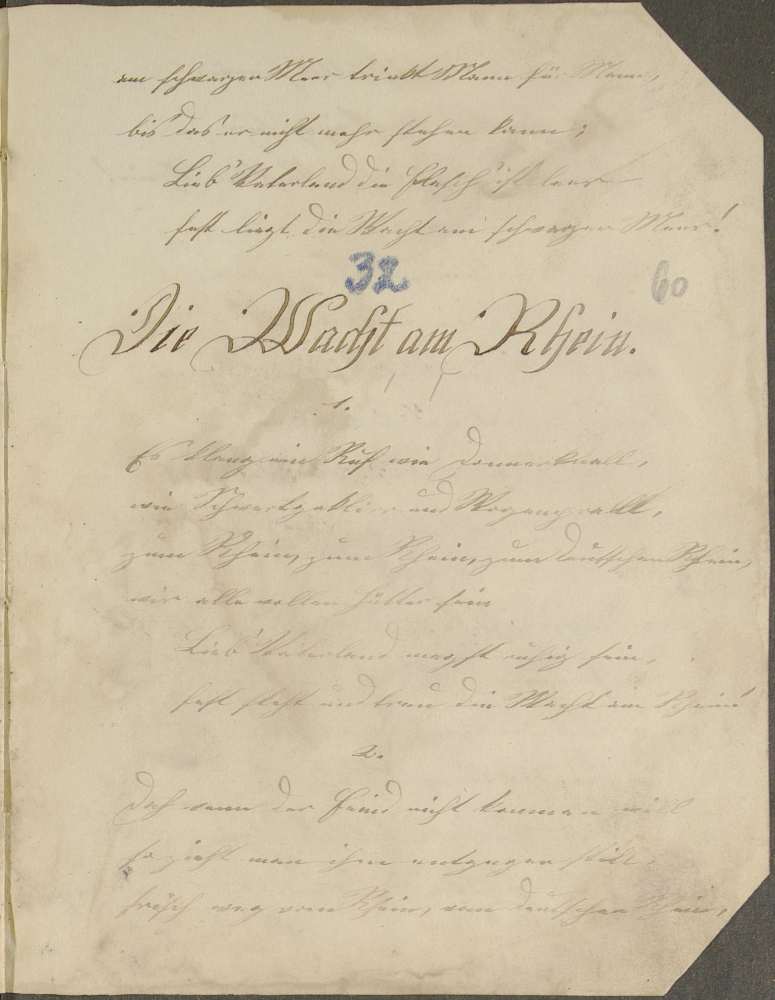 am schwarzen Meer trinkt Mann für Mann,
bis das er nicht mehr stehen kann;
Lieb' Vaterland die Flasch' ist leer
fest liegt die Wacht am schwarzen Meer!
32
60
Die Wacht am Rhein.
1.
Es klang ein Ruf wie Donnerknall,
wie Schwertgeklirr und Wogenprall,
zum Rhein, zum Rhein, zum deutschen Rhein,
wir alle wollen Hütter sein
Lieb' Vaterland magst ruhig sein,
fest steht und treu die Wacht am Rhein!
2.
Doch wenn der Feind nicht kommen will
so zieht man ihm entgegen still,
frisch weg vom Rhein, vom deutschen Rhein,